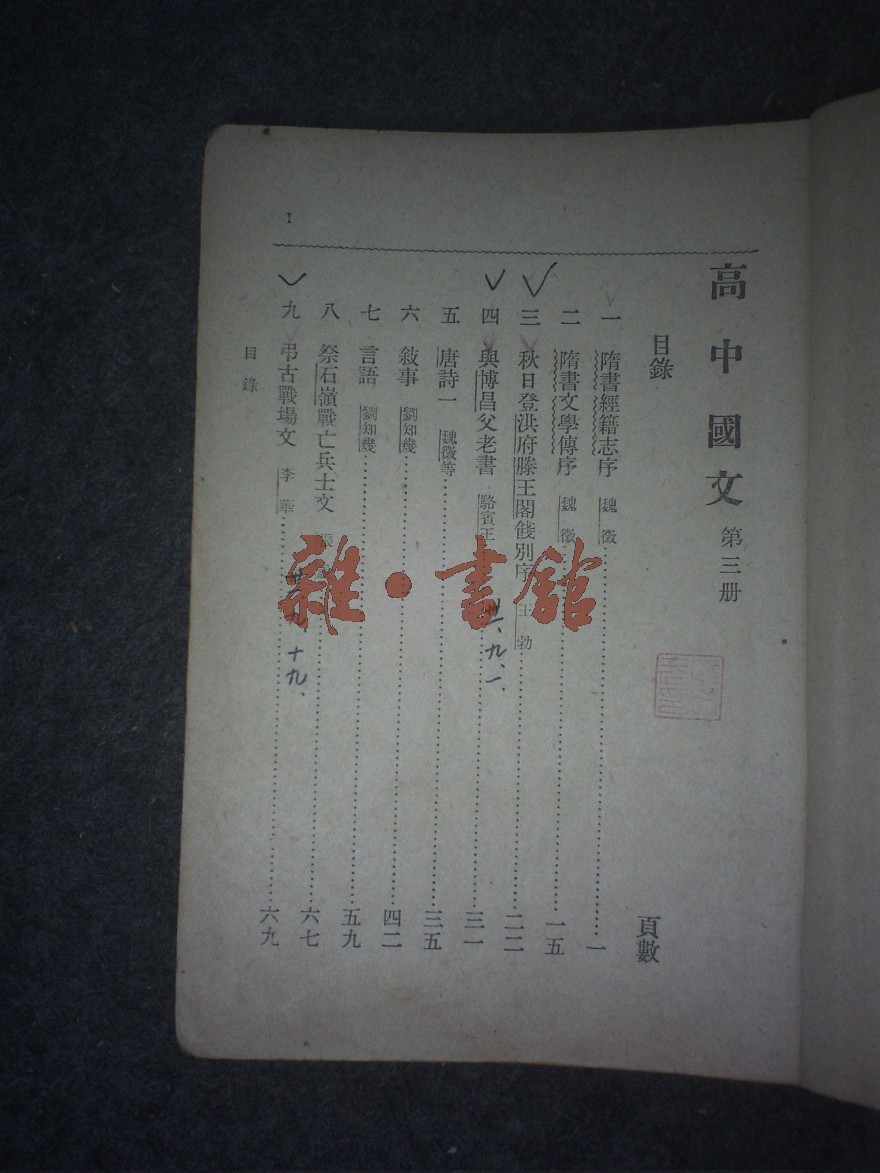 高中國文 第三册
目錄 頁數
一 隋書經籍志序 魏徵 一
二 隋書文學傳序 魏徵 一五
三 秋日登洪府滕王閣餞別序 王勃 二二
四 與博昌父老書 駱賓王 三一
九、一、
五 唐詩一 魏徵等 三五
六 敍事 劉知幾 四二
七 言語 劉知幾 五九
八 祭石嶺戰亡兵士文 張 六七
九 弔古戰場文 李華 六九
十九、
目錄
1
雜·書館